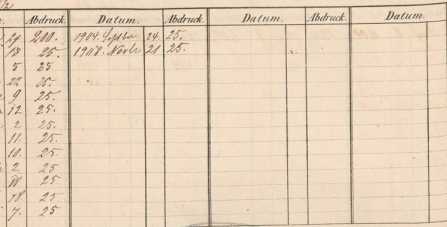 Abdruck. Datum. Abdruck. Datum. Abdruck. Datum.
29 200. 1904. Septbr 24. 25.
13 25. 1908. Novbr 21 25.
5 25
22 25.
9 25.
12 25.
2 25
11. 25.
10. 25.
2 25
10 25
18 25
7. 25